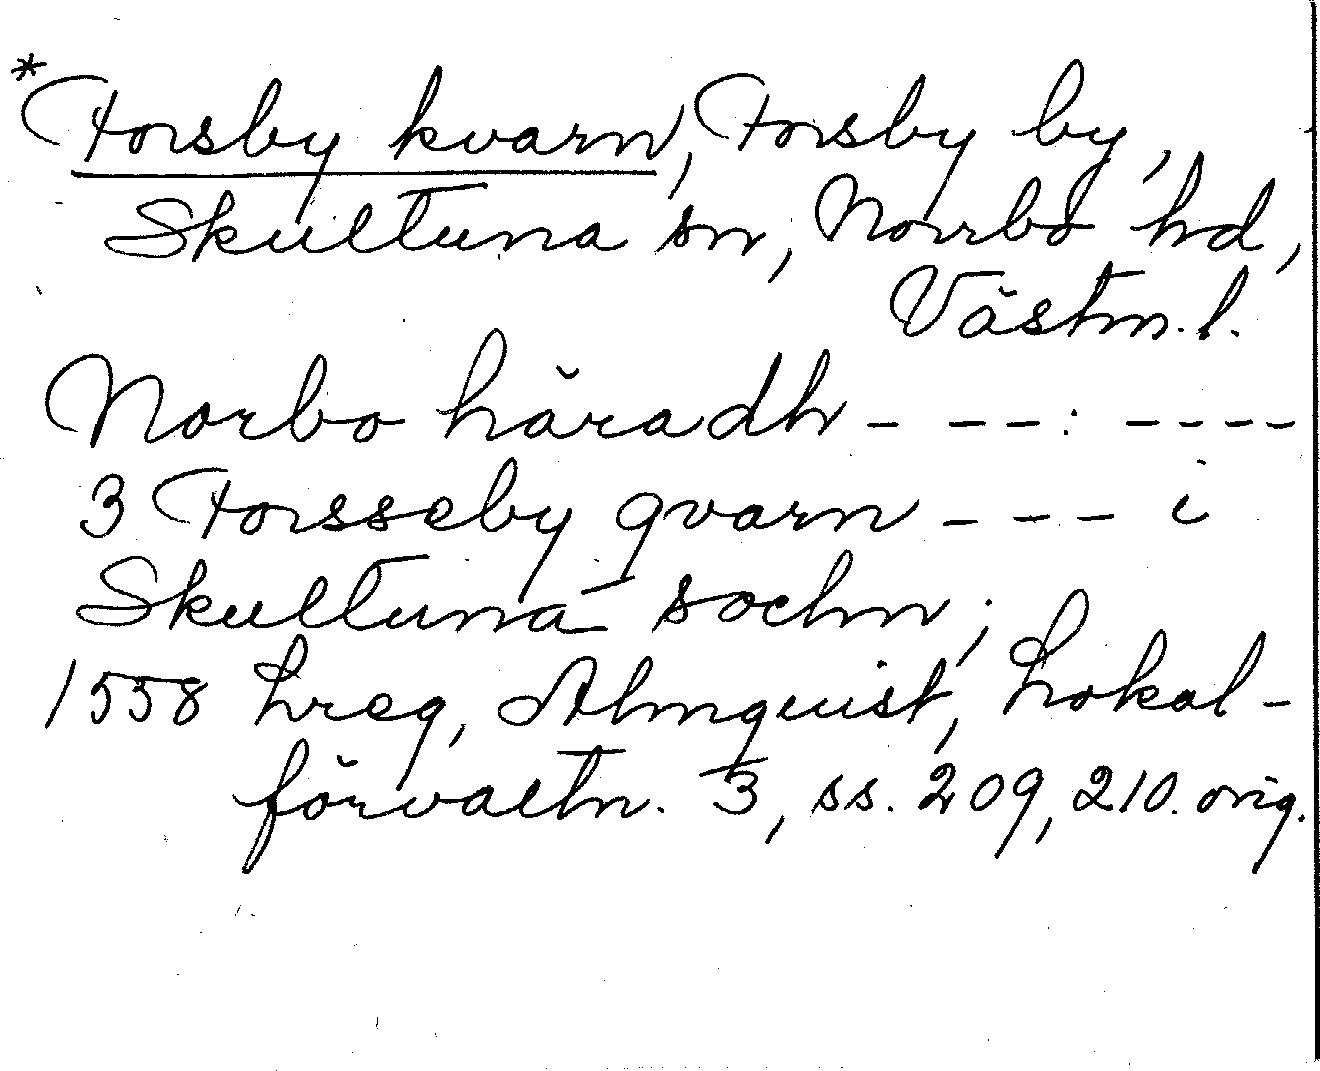 *Forsby kvarn, Forsby by,
Skultuna sn, Norrbo hd,
Västm. l.
Norbo häradh - - - : - - - -
3 Forsseby qvarn - - - i
Skultuna sochn;
1558 Lreg, Almquist, Lokal-
förvaltn. 3, ss. 209, 210. orig.